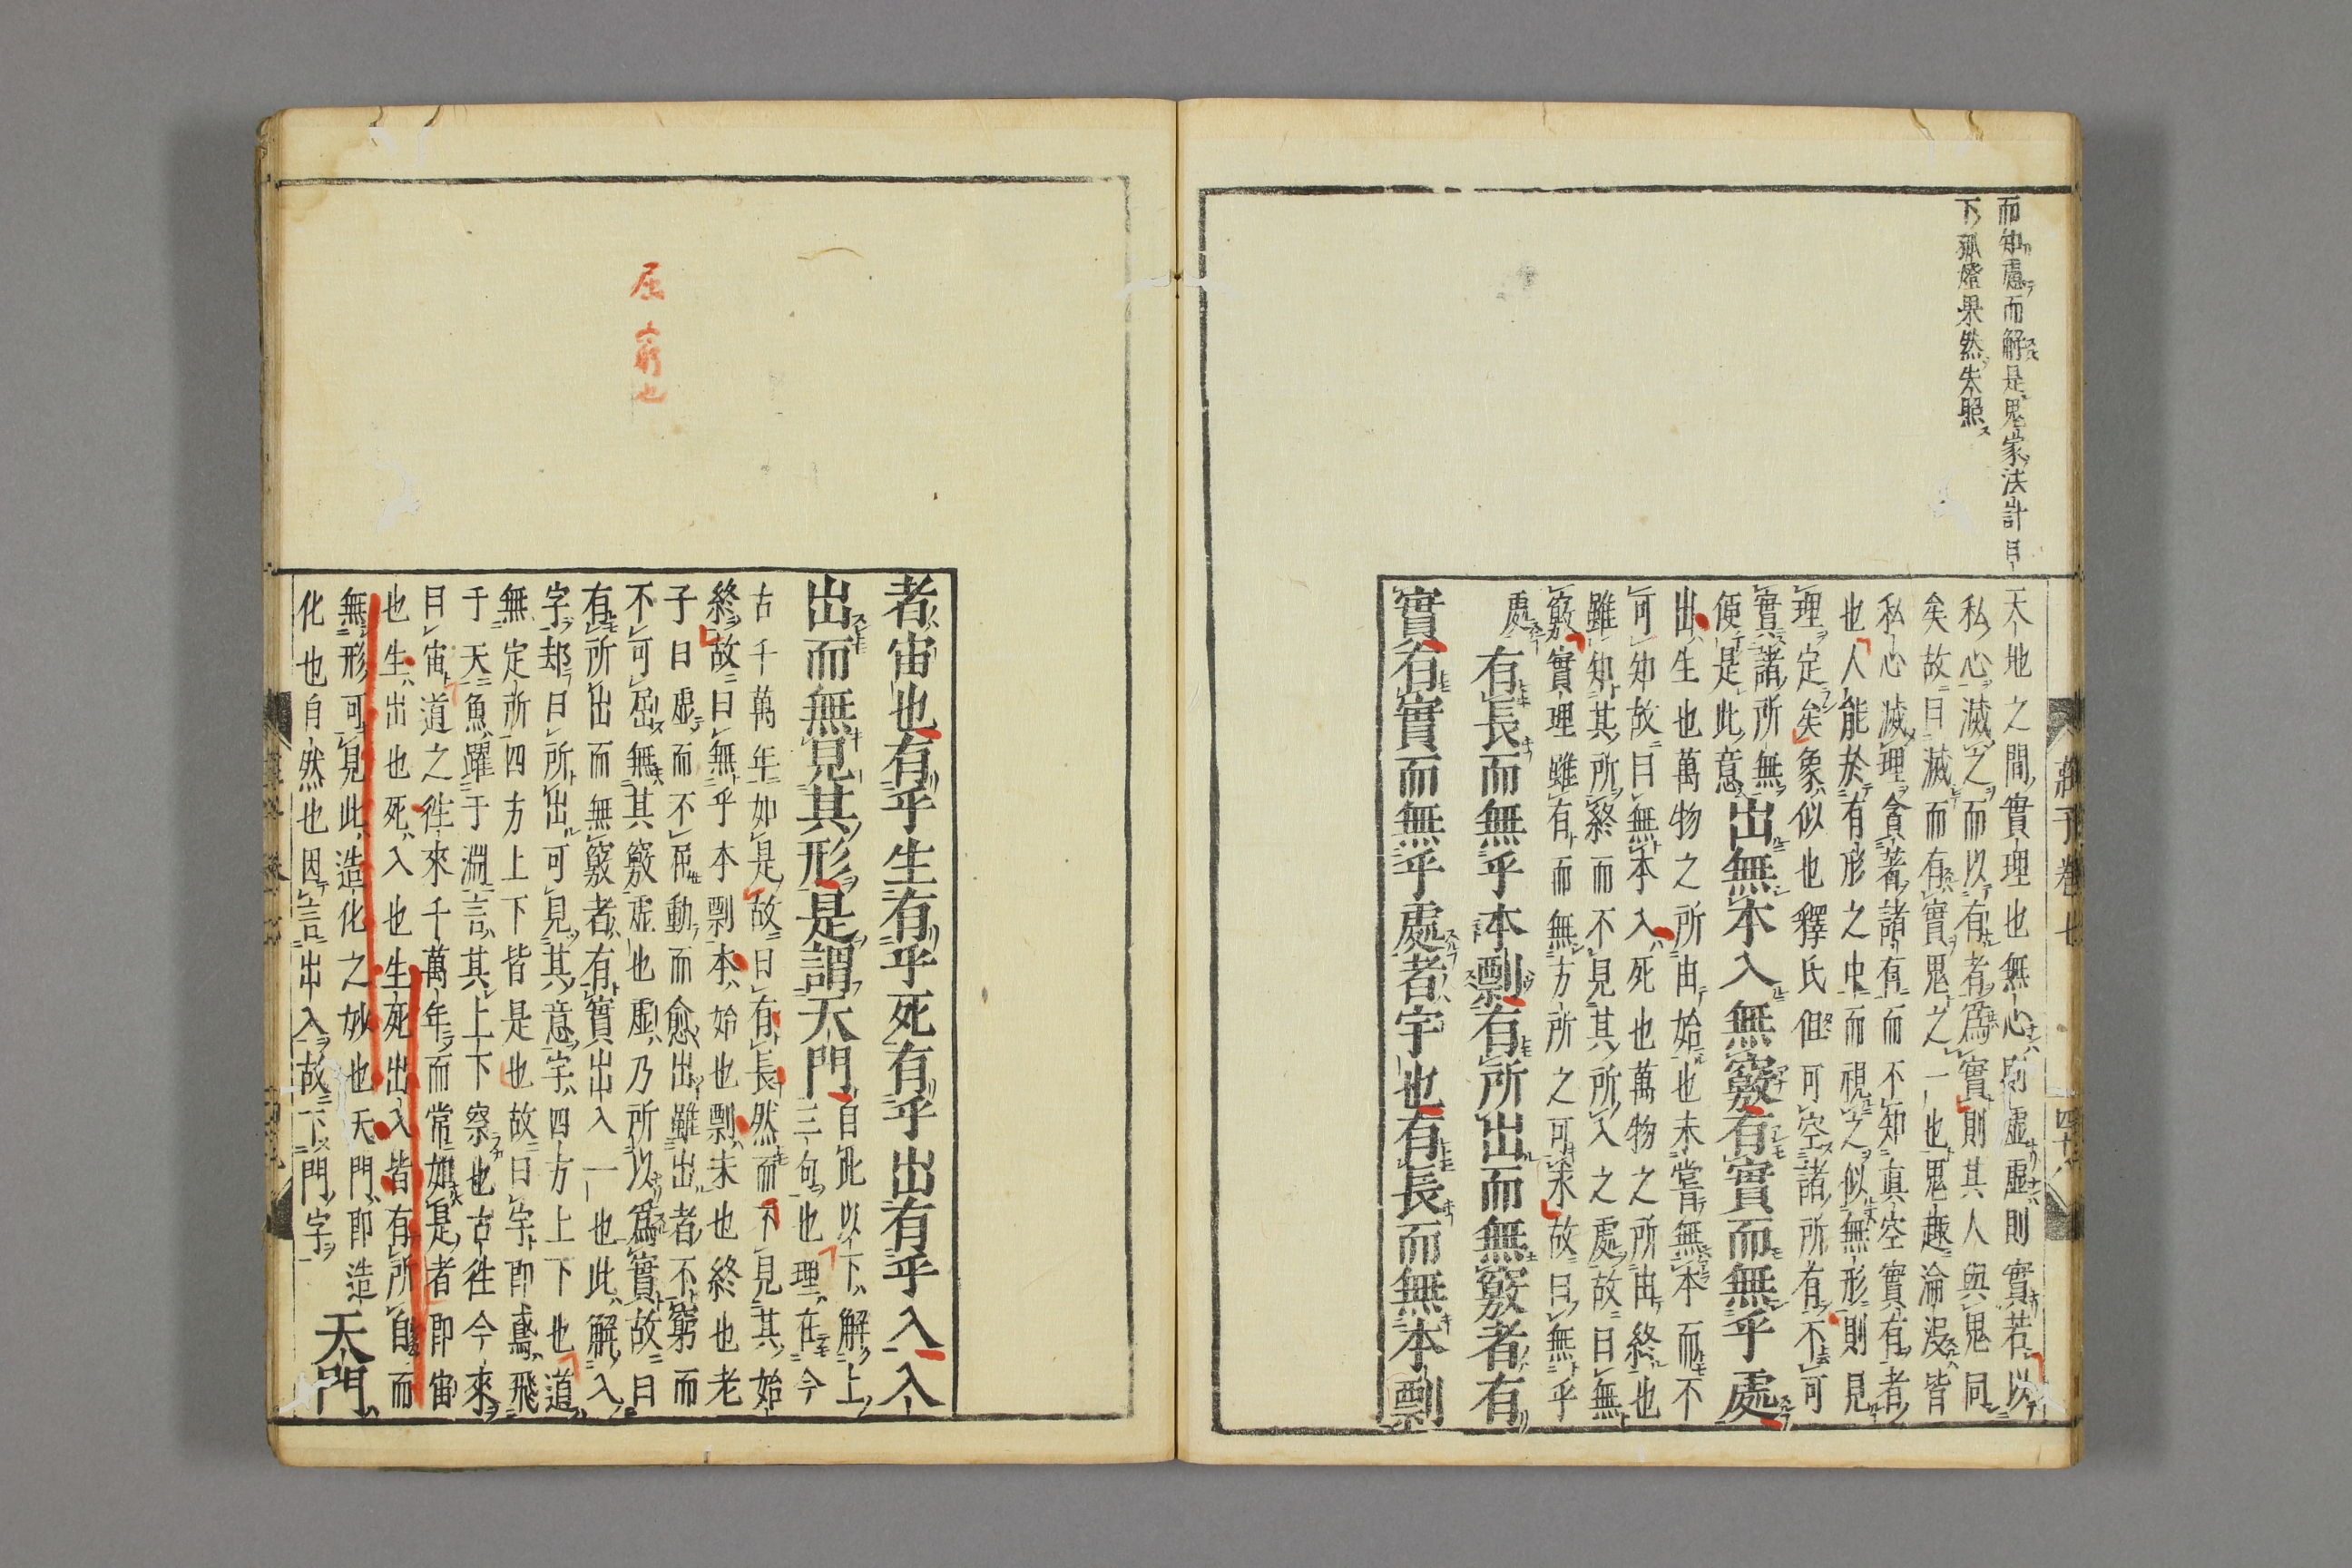 而知慮而解是鬼家法計目
下孤燈果然失照
天地之間實理也無心則虛虛則實若以
私心滅之而以有者為實則其人與鬼同
矣故曰滅而有實鬼之一也鬼趣淪没皆
私心滅理貪著諸有而不知真空實有者
也人能於有形之中而視之似無形則見
理定矣象似也釋氏但可空諸所有不可
實諸所無
便是此意
出無本入無竅有實而無乎處
出生也萬物之所由始也未嘗無本而不
可知故曰無本入死也萬物之所由終也
雖知其所終而不見其所入之處故曰無
竅實理雖有而無方所之可求故曰無乎
處
有長而無乎本剽有所出而無竅者有
實有實而無乎處者宇也有長而無本剽
莊子卷七
四十八
者宙也有乎生有乎死有乎出有乎入入
出而無見其形是謂天門
自此以下解上
三句也理在今
古千萬年如是故曰有長然而不見其始
終故曰無乎本剽本始也剽末也終也老
子曰虛而不屈動而愈出雖出者不窮而
不可屈無其竅虛也虛乃所以為實故曰
有所出而無竅者有實出入一也此解入
字却曰所出可見其意宇四方上下也道
無定所四方上下皆是也故曰宇即鳶飛
于天魚躍于淵言其上下察也古往今來
曰宙道之往來千萬年而常如是者即宙
也生出也死入也生死出入皆有所自而
無形可見此造化之妙也天門即造
化也自然也因言出入故下門字
天門
屈 窮也